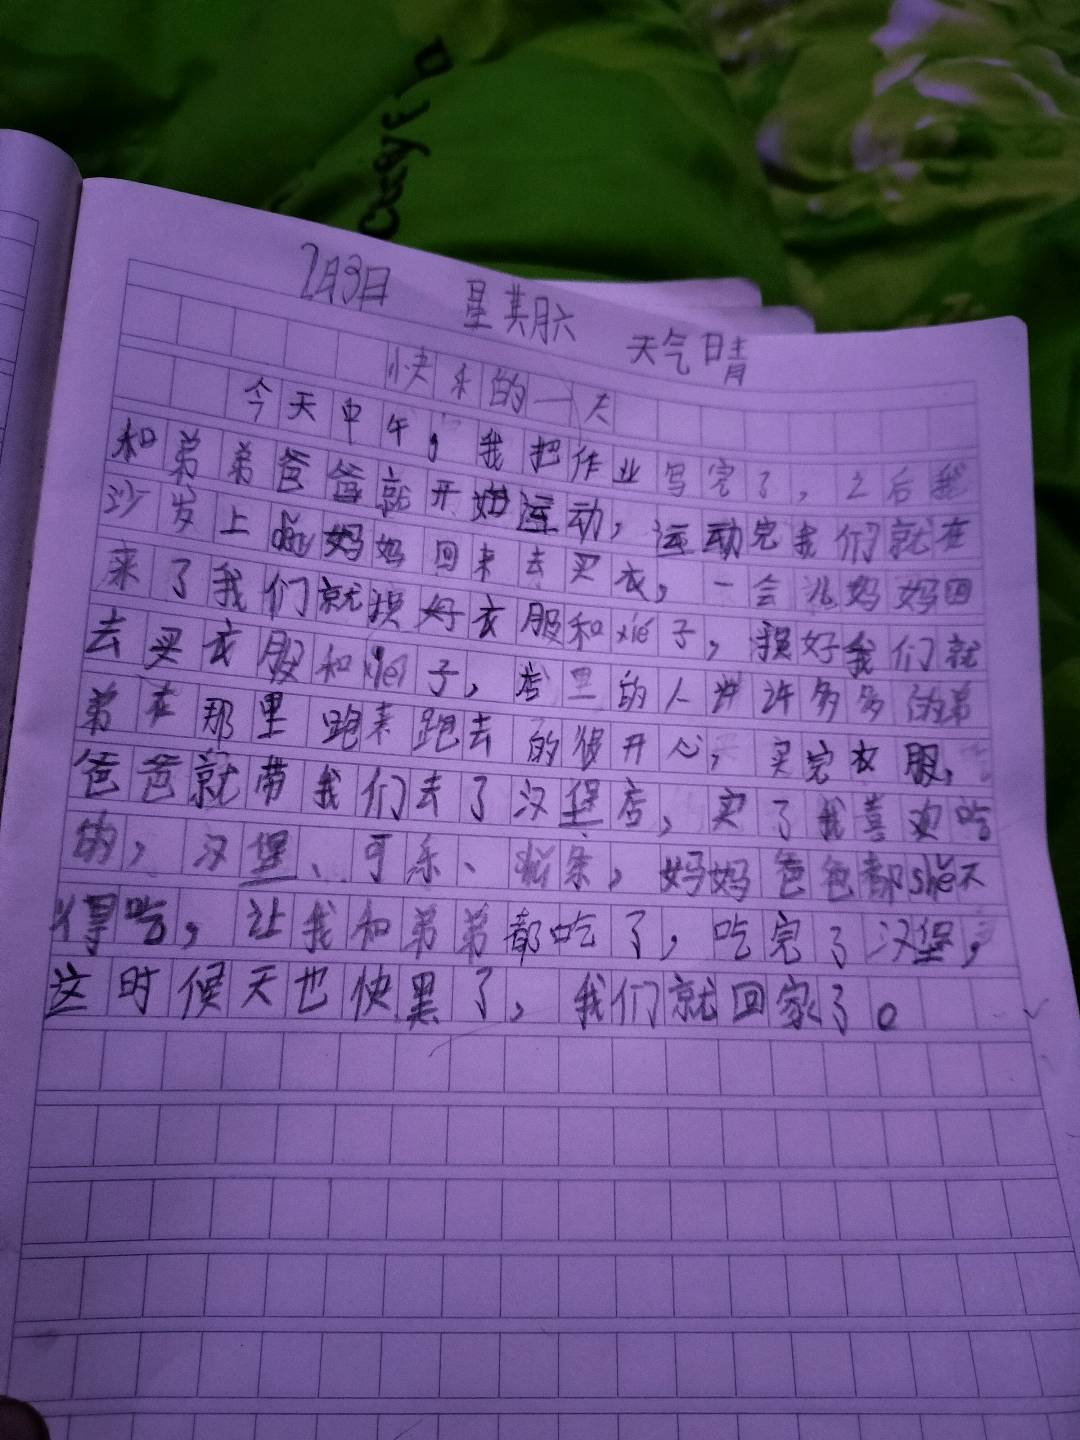 7月3日 星期六 天气晴
快乐的一天
今天中午，我把作业写完了，之后我
和弟弟爸爸就开始运动，运动完我们就在
沙发上 妈妈回来去买衣，一会儿妈妈回
来了我们就换好衣服和xié子，换好我们就
去买衣服和xié子，店里的人许许多多的弟
弟在那里跑来跑去的很开心，买完衣服，
爸爸就带我们去了汉堡店，买了我喜欢吃
的，汉堡、可乐、条，妈妈爸爸都shě不
得吃，让我和弟弟都吃了，吃完了汉堡，
这时候天也快黑了，我们就回家了。